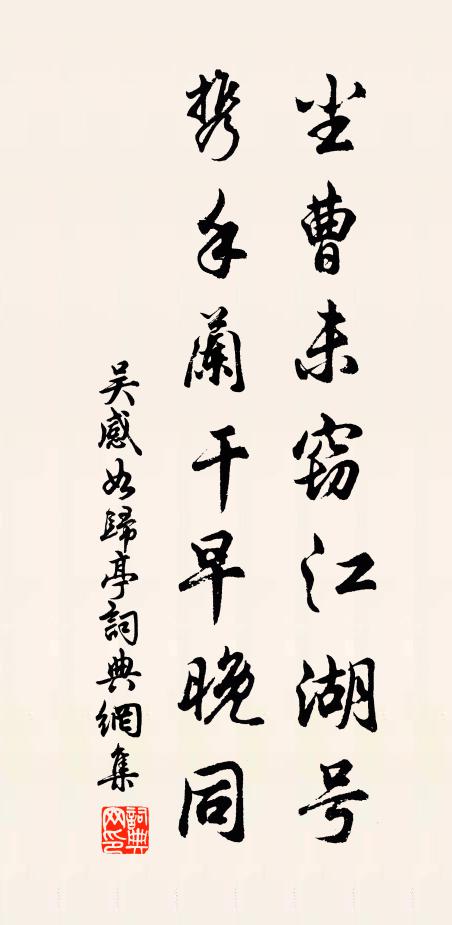 坐曹未窃江湖号
携手蘭干早晚同
吴感如歸亭詞典網集
詞典網印